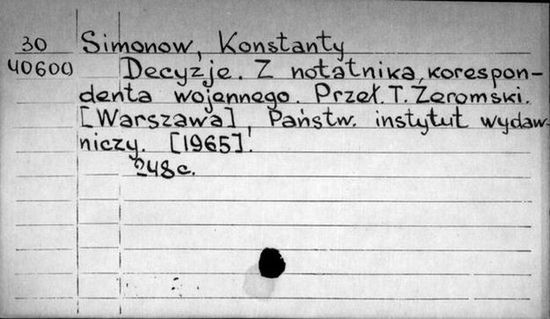 30 Simonow, Konstanty
40600 Decyzje. Z notatnika korespon-
denta wojennego. Przeł. T. Żeromski.
[Warszawa], Państw. instytut wydaw-
niczy. [1965].
248 c.